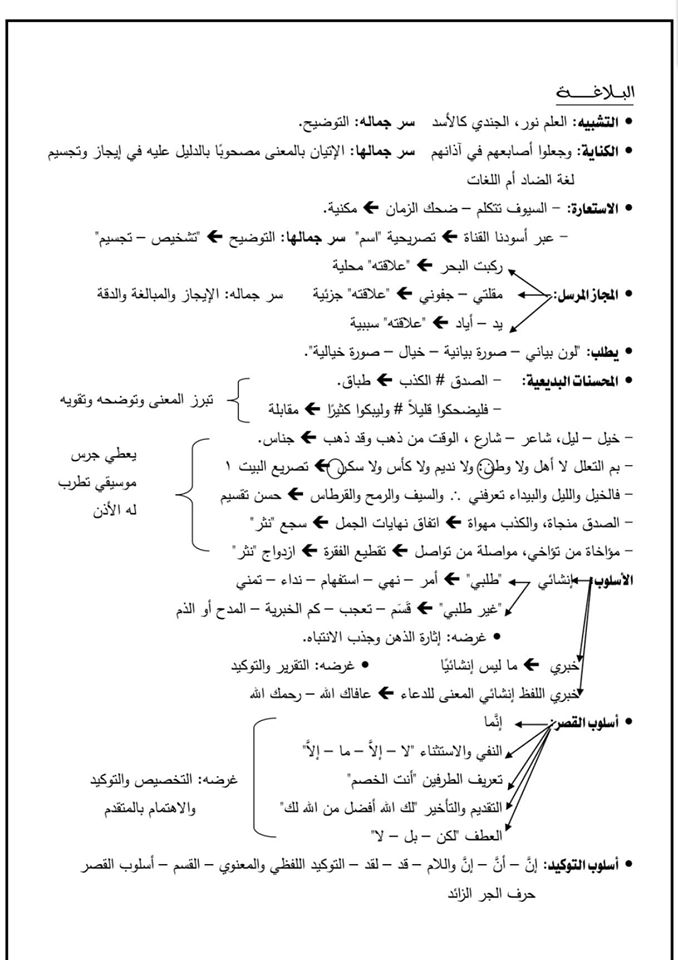 البلاغـــة
• التشبيه: العلم نور، الجندي كالأسد    سر جماله: التوضيح.
• الكناية: وجعلوا أصابعهم في آذانهم    سر جمالها: الإتيان بالمعنى مصحوبًا بالدليل عليه في إيجاز وتجسيم
لغة الضاد أم اللغات
• الاستعارة: – السيوف تتكلم – ضحك الزمان ← مكنية.
– عبر أسودنا القناة ← تصريحية "اسم"  سر جمالها: التوضيح ← "تشخيص – تجسيم"
ركبت البحر ← "علاقته" محلية
• المجاز المرسل: مقلتي – جفوني ← "علاقته" جزئية    سر جماله: الإيجاز والمبالغة والدقة
يد – أياد ← "علاقته" سببية
• يطلب: "لون بياني – صورة بيانية – خيال – صورة خيالية".
• المحسنات البديعية: – الصدق # الكذب ← طباق.
– فليضحكوا قليلاً # وليبكوا كثيرًا ← مقابلة
تبرز المعنى وتوضحه وتقويه
– خيل – ليل، شاعر – شارع ، الوقت من ذهب وقد ذهب ← جناس.
– بم التعلل لا أهل ولا وطن: ولا نديم ولا كأس ولا سكن ← تصريع البيت ١
– فالخيل والليل والبيداء تعرفني ∴ والسيف والرمح والقرطاس ← حسن تقسيم
– الصدق منجاة، والكذب مهواة ← اتفاق نهايات الجمل ← سجع "نثر"
– مؤاخاة من تؤاخي، مواصلة من تواصل ← تقطيع الفقرة ← ازدواج "نثر"
يعطي جرس
موسيقي تطرب
له الأذن
الأسلوب: إنشائي "طلبي" ← أمر – نهي – استفهام – نداء – تمني
"غير طلبي" ← قَسَم – تعجب – كم الخبرية – المدح أو الذم
• غرضه: إثارة الذهن وجذب الانتباه.
خبري ← ما ليس إنشائيًا    • غرضه: التقرير والتوكيد
خبري اللفظ إنشائي المعنى للدعاء ← عافاك الله – رحمك الله
• أسلوب القصر: إنَّما
النفي والاستثناء "لا – إلاَّ – ما – إلاَّ"
تعريف الطرفين "أنت الخصم"
التقديم والتأخير "لك الله أفضل من الله لك"
العطف "لكن – بل – لا"
غرضه: التخصيص والتوكيد
والاهتمام بالمتقدم
• أسلوب التوكيد: إنَّ – أنَّ – إنَّ واللام – قد – لقد – التوكيد اللفظي والمعنوي – القسم – أسلوب القصر
حرف الجر الزائد